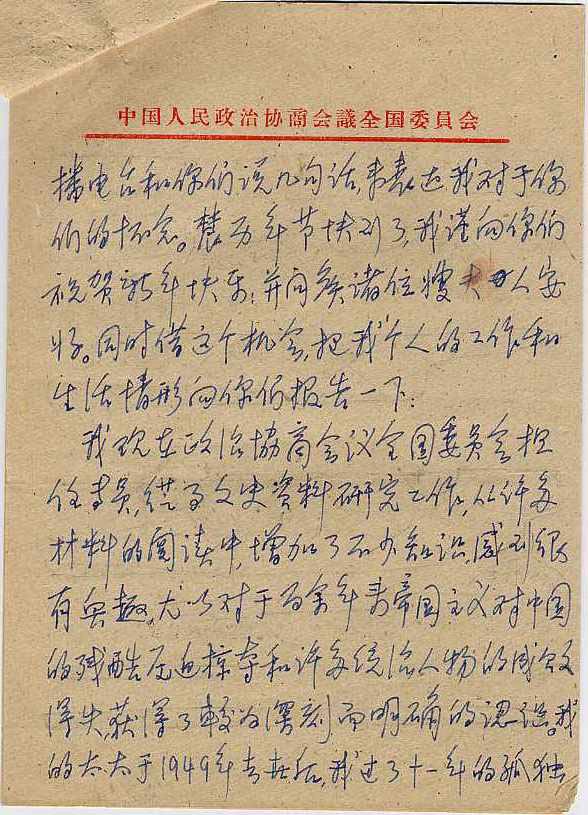 中国人民政治协商会議全国委員会
播电台和你们谈几句话,来表达我对于你
们的怀念。农历年节快到了,我谨向你们
祝贺新年快乐,并问候诸位嫂夫人安
好。同时借这个机会,把我个人的工作和
生活情形向你们报告一下:
我现在政治協商会议全国委員会担
任专员,从事文史资料研究工作,从许多
材料的阅读中,增加了不少知识,感到很
有兴趣,尤以对于百余年来帝国主义对中国
的残酷压迫掠夺和许多统治人物的成败
得失,获得了較为深刻而明确的认识。我
的太太于1949年去世后,我过了十一年的孤独